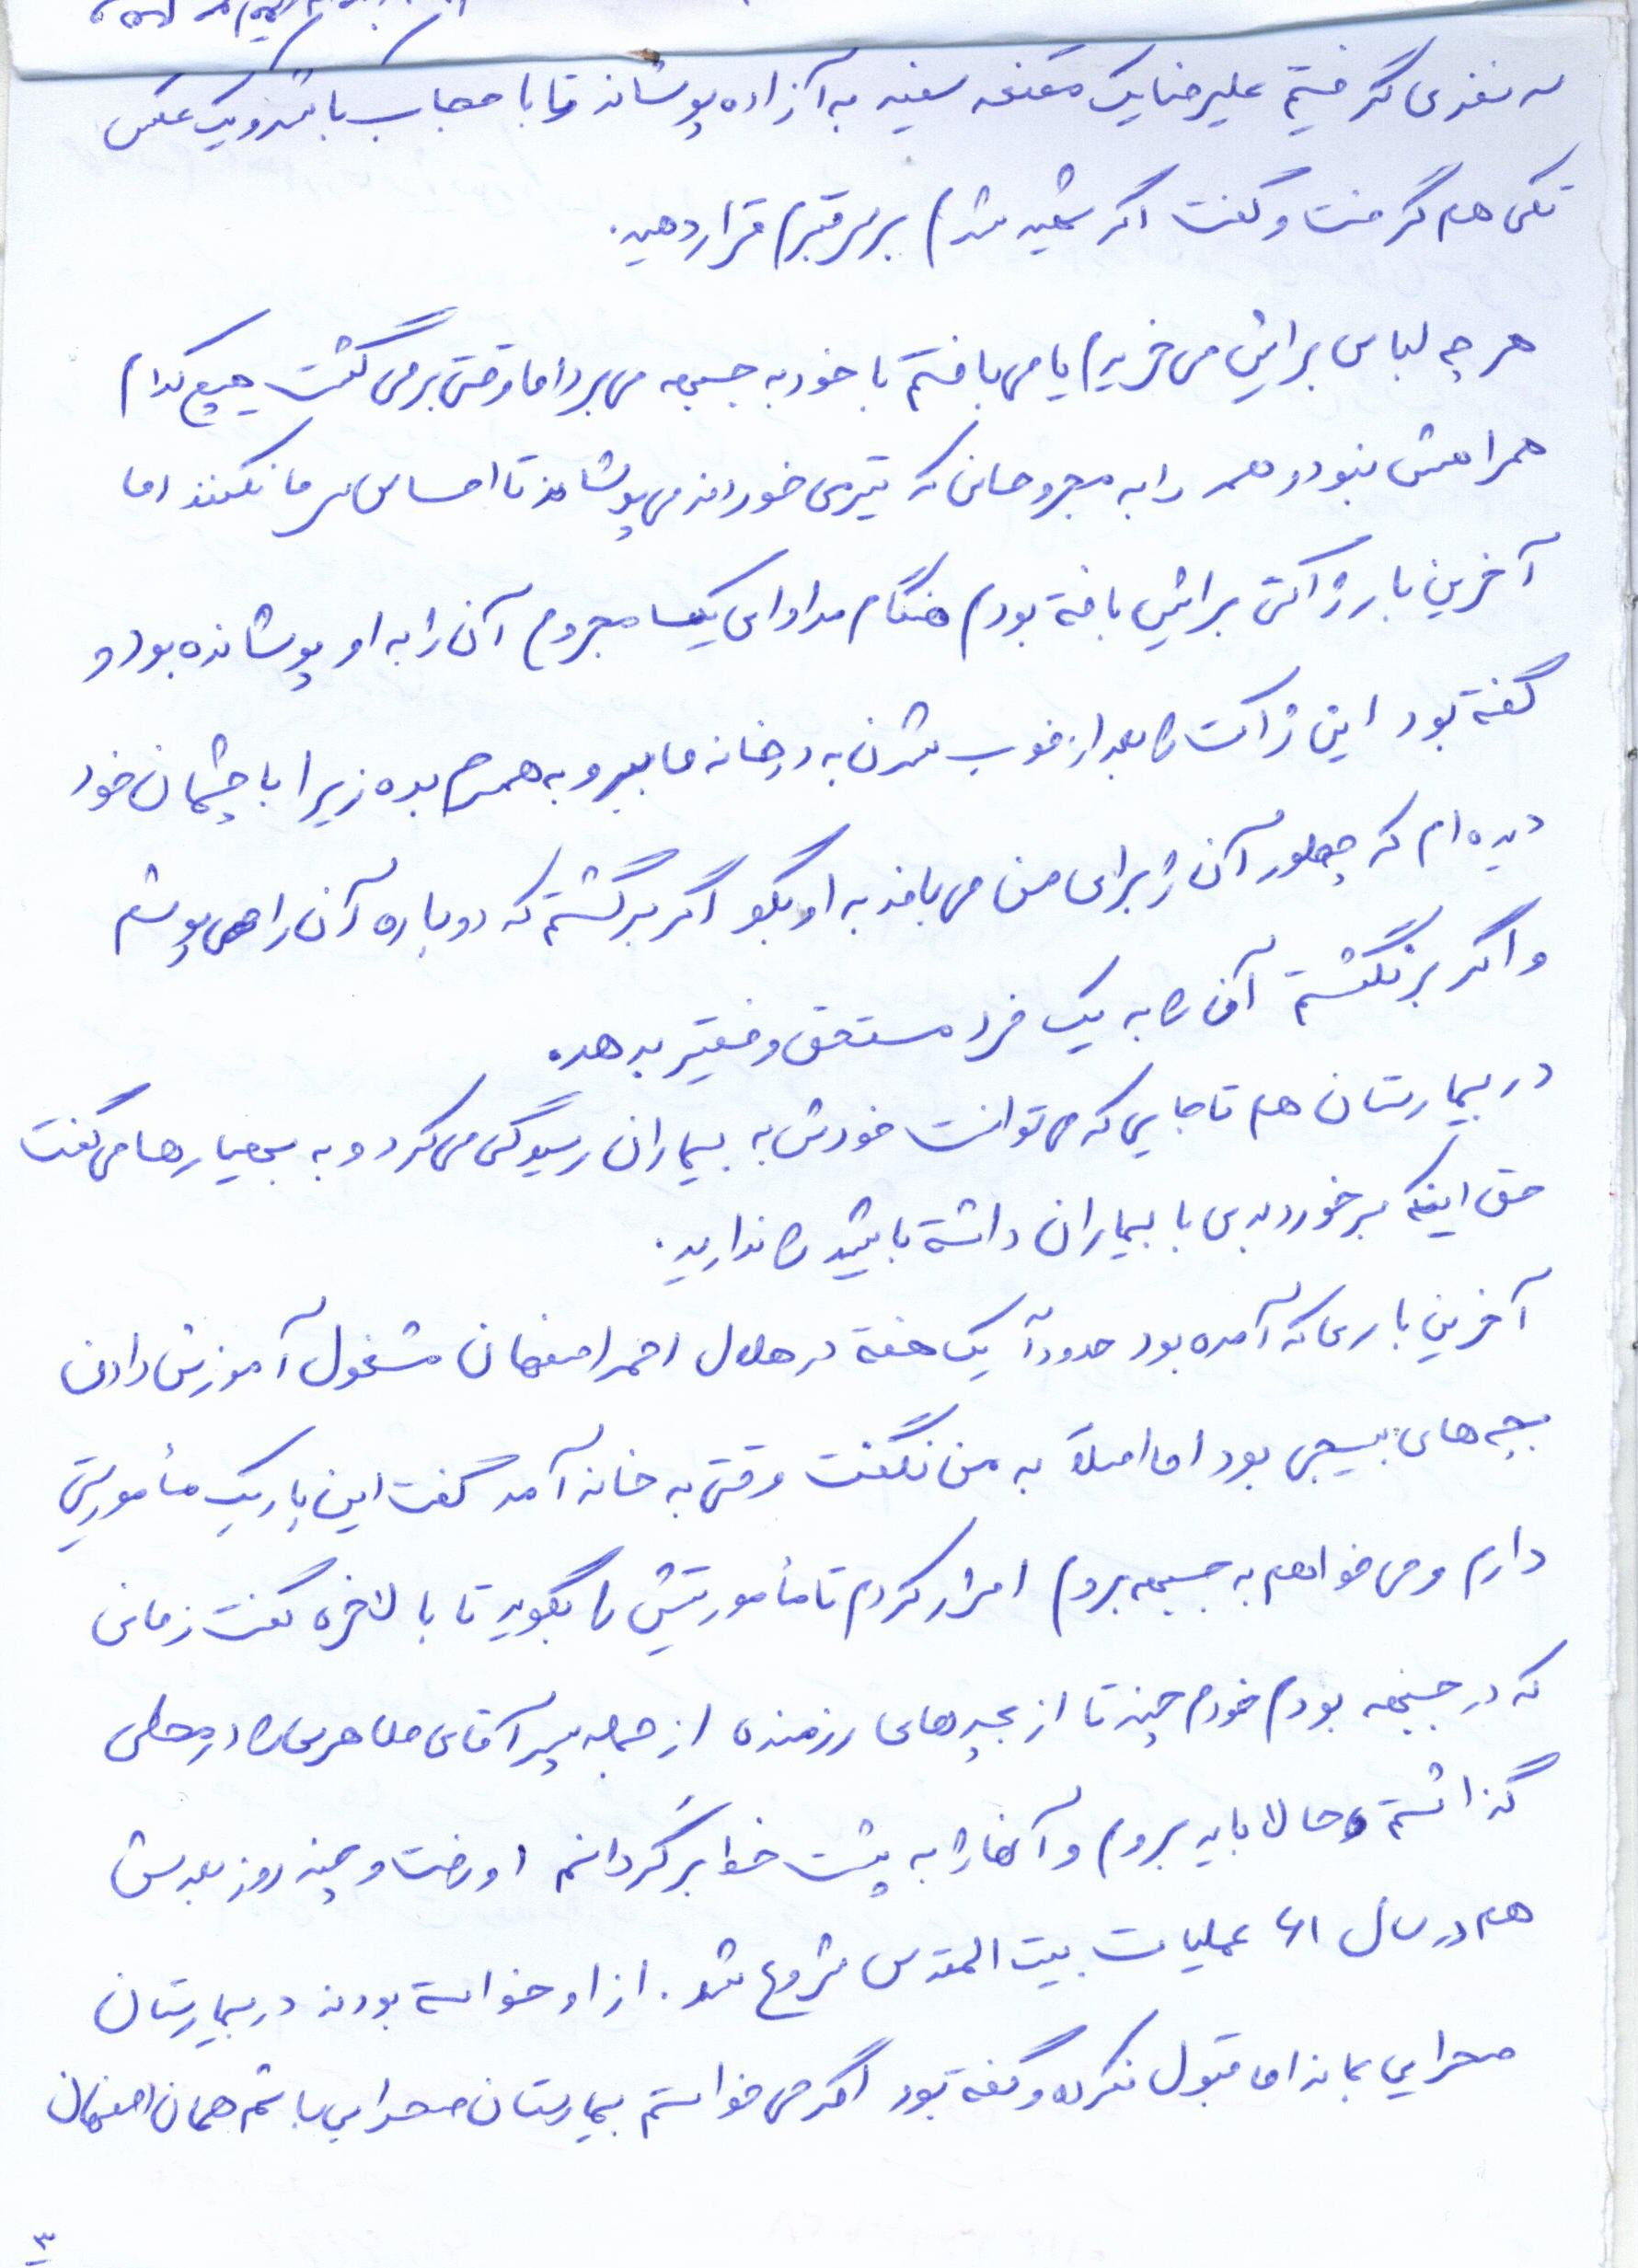 سه نفری گرفتیم علیرضا یک مقنعه سفید به آزاده پوشاند تا با حجاب باشد و یک عکس
تکی هم گرفت و گفت اگر شهید شدم بر سر قبرم قرار دهید.
هر چه لباس برایش می خریدم یا می بافتم با خود به جبهه می برد اما وقتی برمی گشت هیچ کدام
همراهش نبود و همه را به مجروحانی که تیر می خوردند می پوشاند تا احساس سرما نکنند اما
آخرین بار ژاکتی برایش بافته بودم هنگام مداوای یک مجروح آن را به او پوشانده بود و
گفته بود این ژاکت را بعد از خوب شدن به در خانه ما ببر و به همسرم بده زیرا با چشمان خود
دیده ام که چطور آن را برای من می بافد به او بگو اگر برگشتم که دوباره آن را می پوشم
و اگر برنگشتم آن را به یک فرد مستحق و فقیر بدهد.
در بیمارستان هم تا جایی که می توانست خودش به بیماران رسیدگی می کرد و به بهیارها می گفت
حق اینکه برخورد بدی با بیماران داشته باشید را ندارید.
آخرین باری که آمده بود حدوداً یک هفته در هلال احمر اصفهان مشغول آموزش دادن
بچه های بسیجی بود اما اصلاً به من نگفت وقتی به خانه آمد گفت این بار یک مأموریتی
دارم و می خواهم به جبهه بروم اصرار کردم تا مأموریتش را بگوید تا بالاخره گفت زمانی
که در جبهه بودم خودم چند تا از بچه های رزمنده از جمله پسر آقای طاهری را در محلی
گذاشتم و حالا باید بروم و آنها را به پشت خط برگردانم او رفت و چند روز بعدش
هم در سال ۶۱ عملیات بیت المقدس شروع شد. از او خواسته بودند در بیمارستان
صحرایی بماند اما قبول نکرد و گفته بود اگر می خواستم بیمارستان صحرایی باشم همان اصفهان
۳